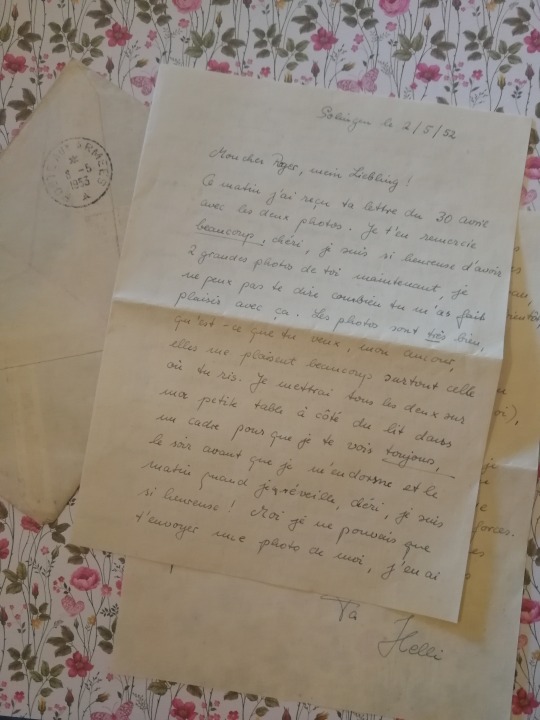 Solingen le 2/5/52
Mon cher Roger, mein Liebling!
Ce matin j'ai reçu ta lettre du 30 avril
avec les deux photos. Je t'en remercie
beaucoup, chéri, je suis si heureuse d'avoir
2 grandes photos de toi maintenant, je
ne peux pas te dire combien tu m'as fait
plaisir avec ça. Les photos sont très bien,
qu'est-ce que tu veux, mon amour,
elles me plaisent beaucoup surtout celle
où tu ris. Je mettrai tous les deux sur
ma petite table à côté du lit dans
un cadre pour que je te vois toujours,
le soir avant que je m'endorme et le
matin quand je réveille, chéri, je suis
si heureuse! Moi je ne pouvais que
t'envoyer une photo de moi, j'en ai
Ta
Helli
ARMEES